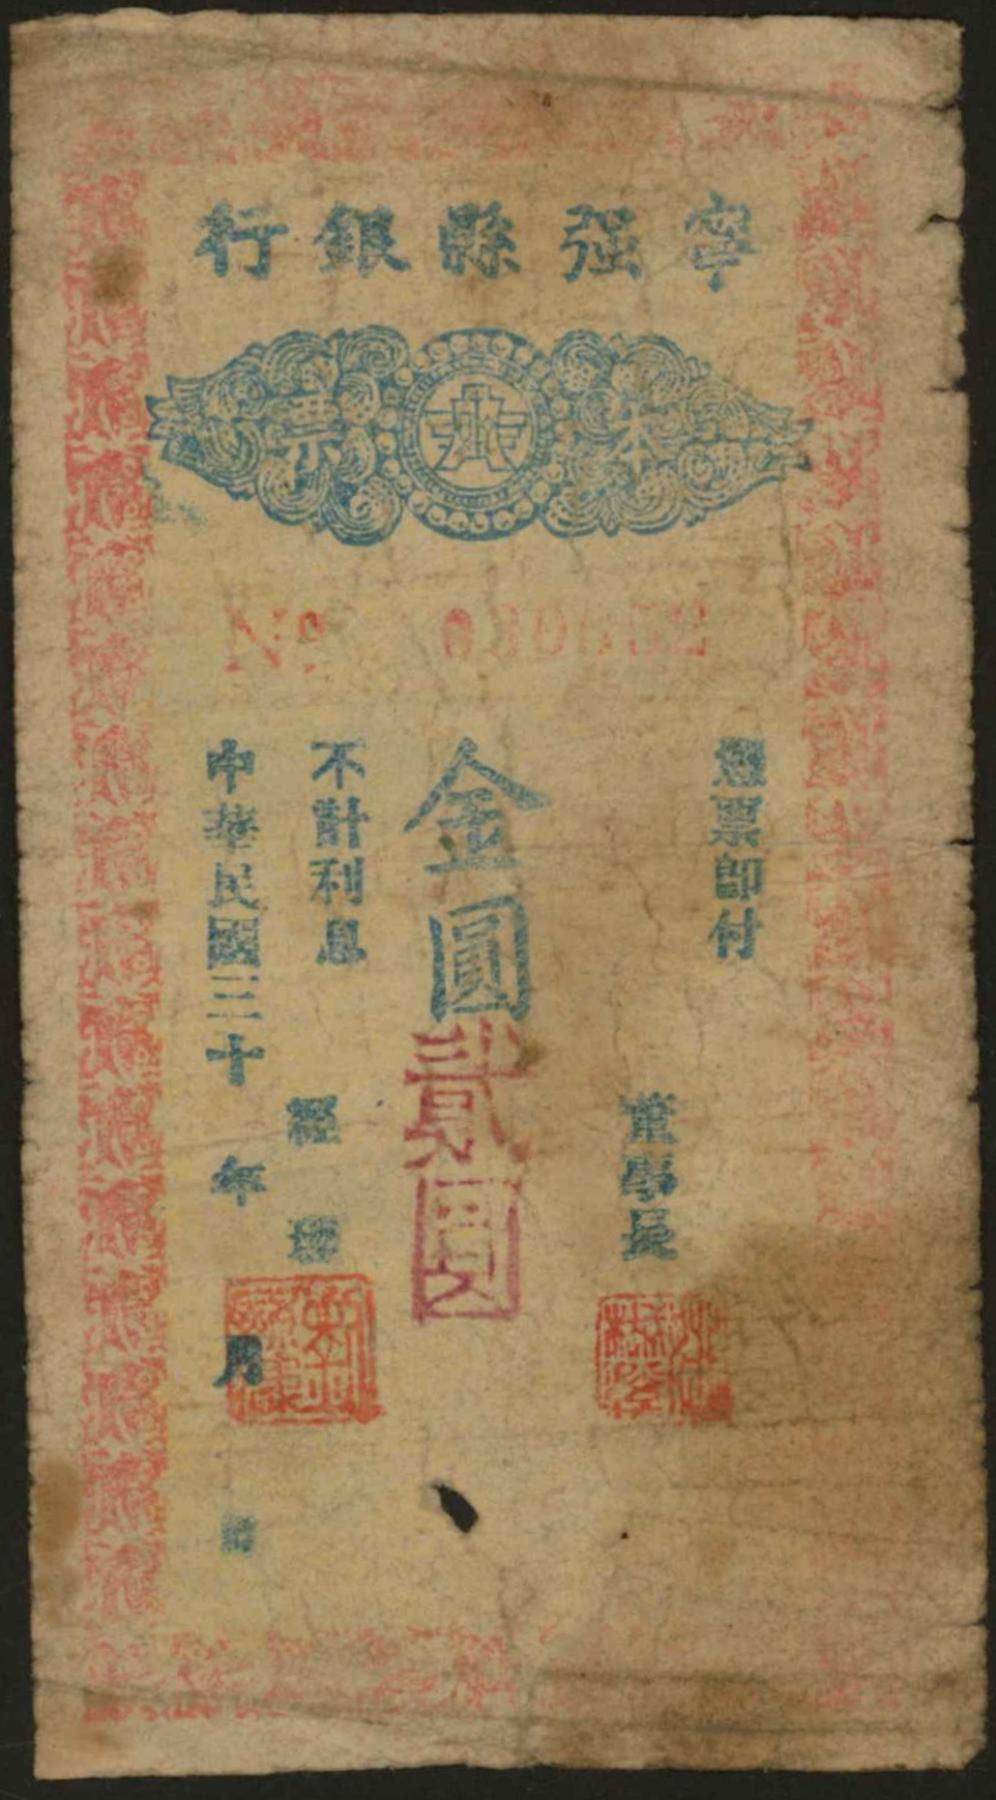 寧強縣銀行
本票
No
憑票即付
董事長
金圓貳圓
不計利息
經理
中華民國三十年月